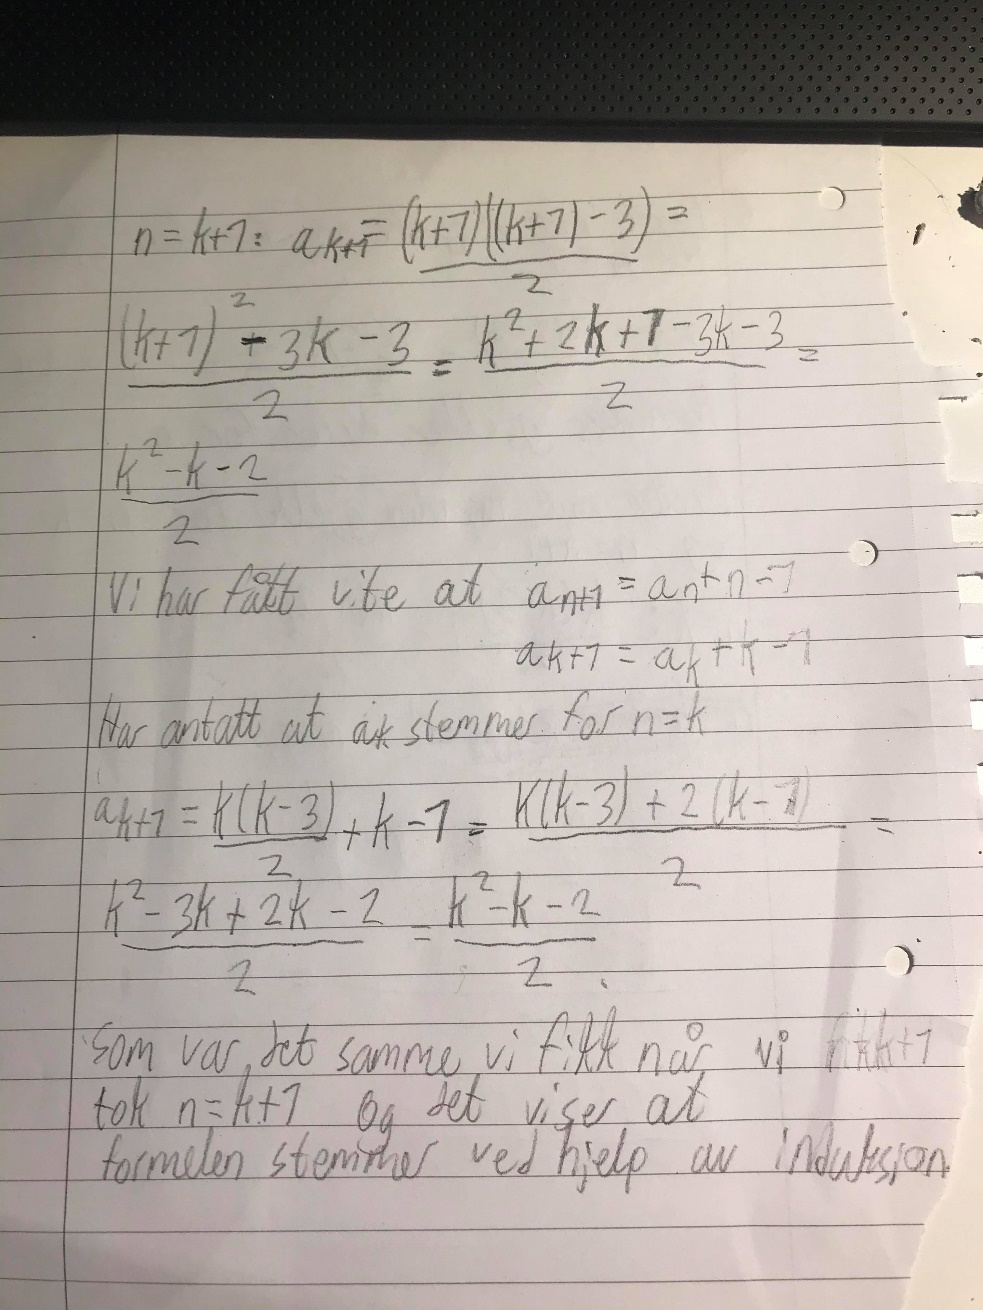 n = k+1: a_{k+1} = (k+1)((k+1) - 3) =
2
(k+1)² - 3k - 3 = k² + 2k + 1 - 3k - 3 =
2 2
k² - k - 2
2
Vi har fått vite at a_{n+1} = a_n + n - 1
a_{k+1} = a_k + k - 1
Har antatt at ak stemmer for n = k
a_{k+1} = k(k-3) + k - 1 = k(k-3) + 2(k-1) =
2 2
k² - 3k + 2k - 2 = k² - k - 2
2 2
Som var det samme vi fikk når vi
tok n = k+1 og det viser at
formelen stemmer ved hjelp av induksjon